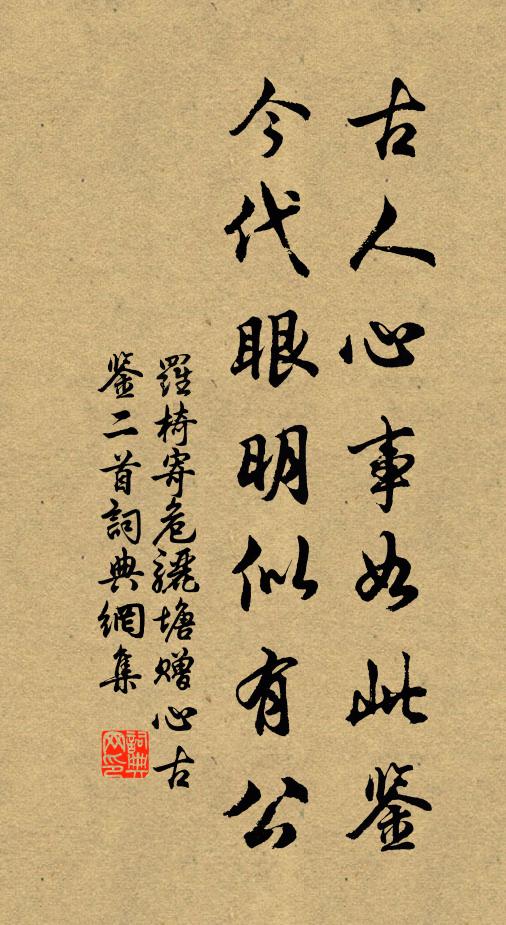 古人心事如此鉴
今代眼明似有公
羅椅寄危驪塘赠心古
鉴二首詞典網集
詞典
网印